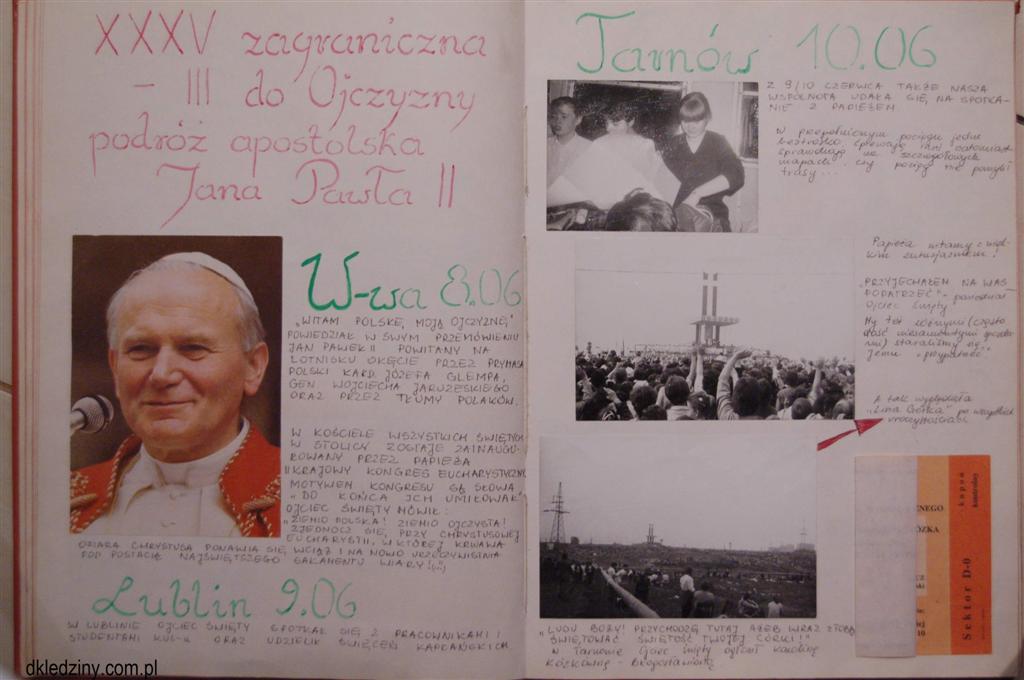 XXXV zagraniczna
- III do Ojczyzny
podróż apostolska
Jana Pawła II
W-wa 8.06
"WITAM POLSKĘ, MOJĄ OJCZYZNĘ"
POWIEDZIAŁ W SWYM PRZEMÓWIENIU
JAN PAWEŁ II POWITANY NA
LOTNISKU OKĘCIE PRZEZ PRYMASA
POLSKI KARD. JÓZEFA GLEMPA,
GEN. WOJCIECHA JARUZESKIEGO
ORAZ PRZEZ TŁUMY POLAKÓW.
W KOŚCIELE WSZYSTKICH ŚWIĘTYCH
W STOLICY ZOSTAJE ZAINAUGU-
ROWANY PRZEZ PAPIEŻA
II KRAJOWY KONGRES EUCHARYSTYCZNY
MOTYWEM KONGRESU SĄ SŁOWA
"DO KOŃCA ICH UMIŁOWAŁ"
OJCIEC ŚWIĘTY MÓWIŁ:
"ZIEMIO POLSKA! ZIEMIO OJCZYSTA!
ZJEDNOCZ SIĘ, PRZY CHRYSTUSOWEJ
EUCHARYSTII, W KTÓREJ KRWAWA
OFIARA CHRYSTUSA PONAWIA SIĘ, WCIĄŻ I NA NOWO URZECZYWISTNIA
POD POSTACIĄ NAJŚWIĘTSZEGO SAKAMENTU WIARY!(...)
Lublin 9.06
W LUBLINIE OJCIEC ŚWIĘTY SPOTKAŁ SIĘ Z PRACOWNIKAMI I
STUDENTAMI KUL-u ORAZ UDZIELIŁ ŚWIĘCEŃ KAPŁAŃSKICH.
Tarnów 10.06
Z 9/10 CZERWCA TAKŻE NASZA
WSPÓLNOTA UDAŁA SIĘ NA SPOTKA-
NIE Z PAPIEŻEM
W przepełnionym pociągu jedne
beztrosko śpiewają inni natomiast
sprawdzają na szczegółowych
mapach czy pociąg nie pomylił
trasy...
Papieża witamy z wiel-
kim entuzjazmem!
"PRZYJECHAŁEM NA WAS
POPATRZEĆ" - powiedział
Ojciec Święty
My też różnymi (często
dość niesamowitymi
) staraliśmy się
Jemu "przypatrzeć"
A tak wyglądała
po wszystkich
uroczystościach
"LUDU BOŻY! PRZYCHODZĘ TUTAJ AŻEB WRAZ Z TOBĄ
ŚWIĘTOWAĆ ŚWIĘTOŚĆ TWOJEJ CÓRKI!"
W Tarnowie Ojciec Święty ogłosił Karolinę
Kózkównę - Błogosławioną
Sektor D-0
kupon
kontrolny
10
dkledziny.com.pl